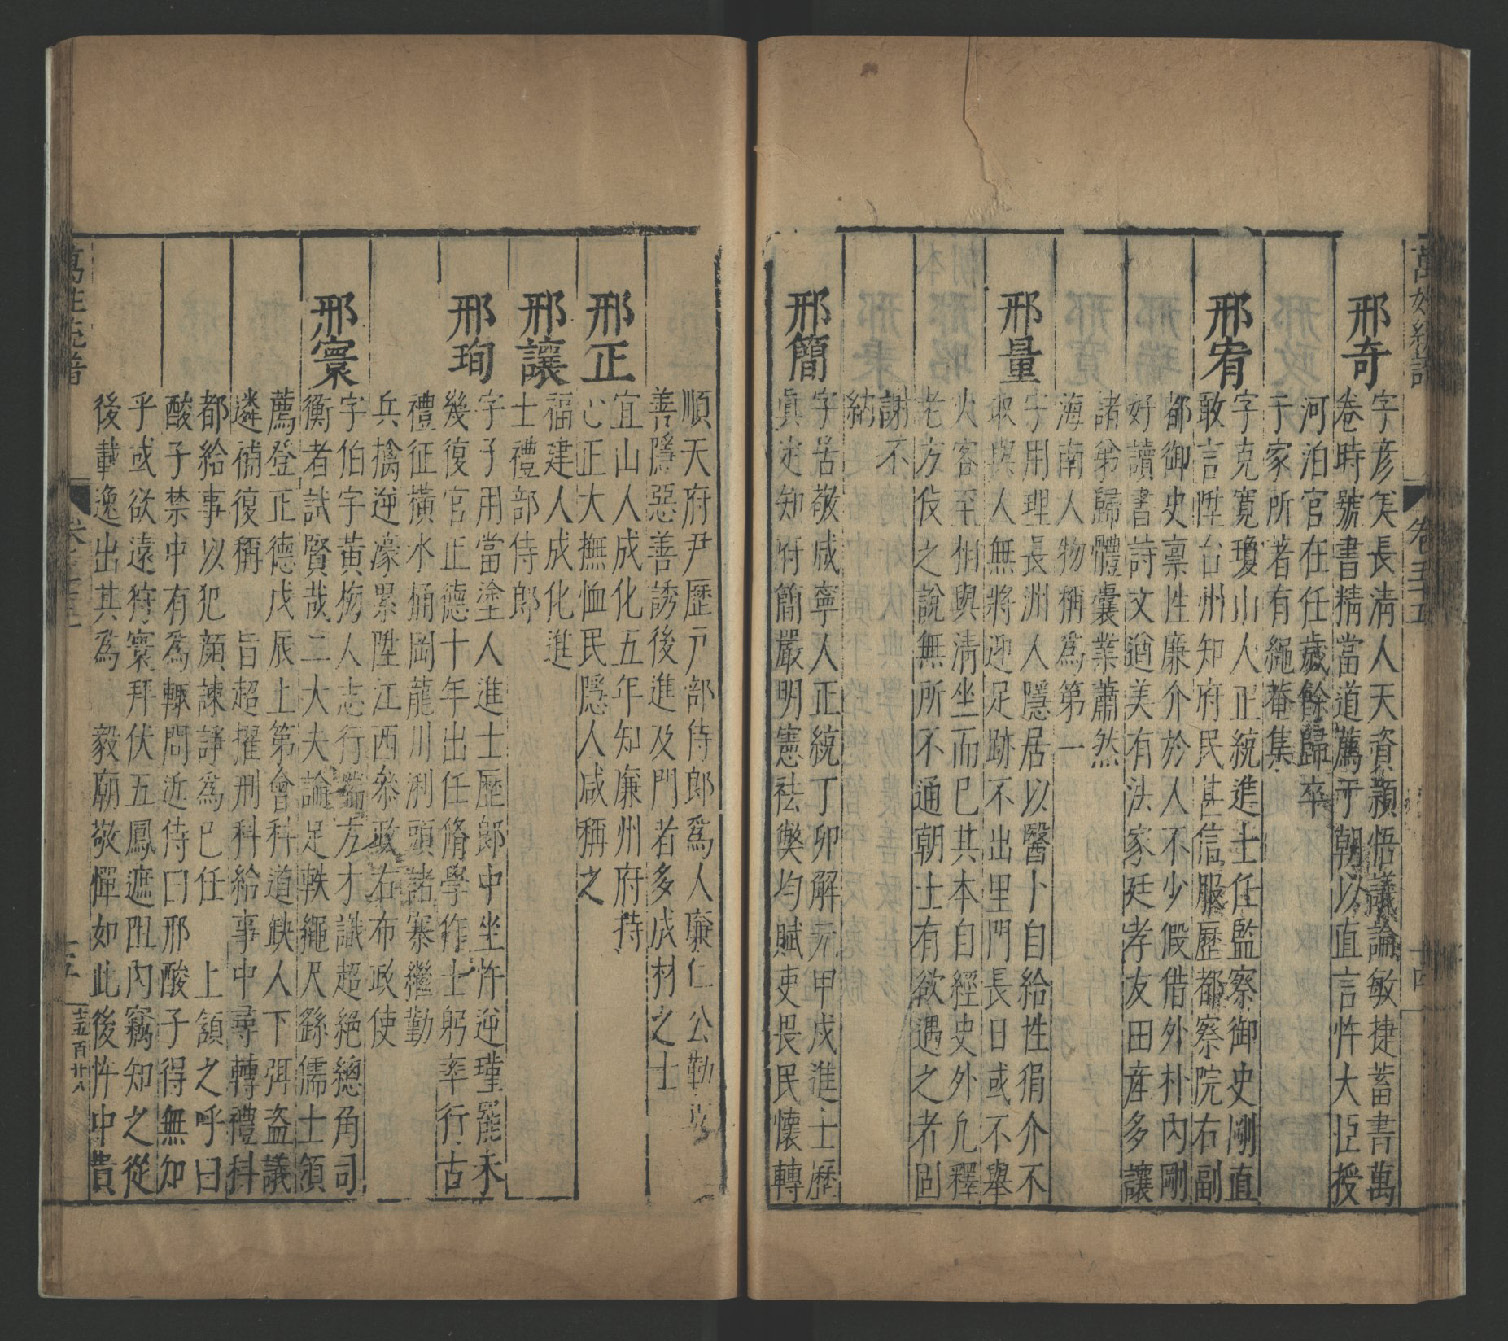 萬姓統譜
卷五十五
十四
邢奇
字彥奚長淸人天資穎悟議論敏捷蓄書萬
卷時號書精當道薦于朝以直言忤大臣授
河泊官在任歲餘歸卒
于家所著有繩菴集
邢宥
字克寬瓊山人正統進士任監察御史剛直
敢言陞台州知府民甚信服歷都察院右副
都御史禀性廉介於人不少假借外朴內剛
好讀書詩文遒美有法家廷孝友田產多讓
諸弟歸體囊業蕭然
海南人物稱爲第一
邢量
字用理長洲人隱居以醫卜自給性狷介不
取與人無將迎足跡不出里門長日或不舉
火客至相與淸坐而已其本自經史外凡釋
老方伎之說無所不通朝士有欲遇之者固
謝不
納
邢簡
字居敬咸寧人正統丁卯解元甲戌進士歷
眞定知府簡嚴明憲袪獘均賦吏畏民懷轉
順天府尹歷戸部侍郎爲人廉仁公勤
善隱惡善誘後進及門若多成材之士
邢正
宜山人成化五年知廉州府持
心正大撫恤民隱人咸稱之
邢讓
福建人成化進
士禮部侍郎
邢珣
字子用當塗人進士歷郎中坐忤逆瑾罷禾
幾復官正德十年出任脩學作士躬率行古
禮征橫水桶岡龍川浰頭諸寨繼勤
兵擒逆濠累陞江西叅政右布政使
邢寰
字伯字黃梅人志行端方才識超絕總角司
衡者試賢哉二大夫論足軼繩尺繇儒士領
薦登正德戊辰上第會科道缺人下弭盜議
遴補復稱　旨超擢刑科給事中尋轉禮科
都給事以犯顏諫諍爲已任　上頷之呼曰
酸子禁中有爲輒問近侍曰邢酸子得無知
乎或欲遠狩寰拜伏五鳳遮阻內竊知之從
後載逸出其爲　毅廟敬憚如此後忤中貴
萬姓統譜
十五
十五百廿八